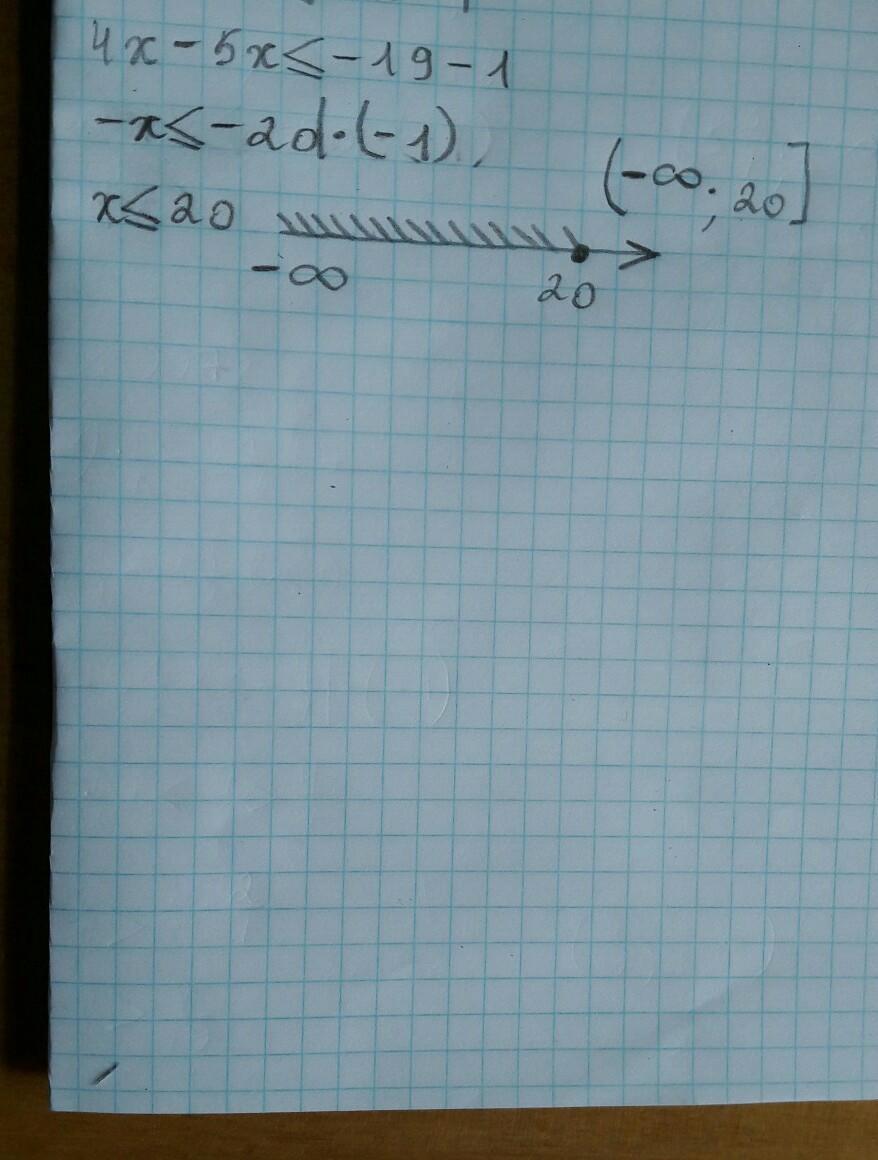 4x - 5x ≤ -19 - 1
-x ≤ -20 · (-1)
x ≤ 20
(-∞; 20]
-∞
20